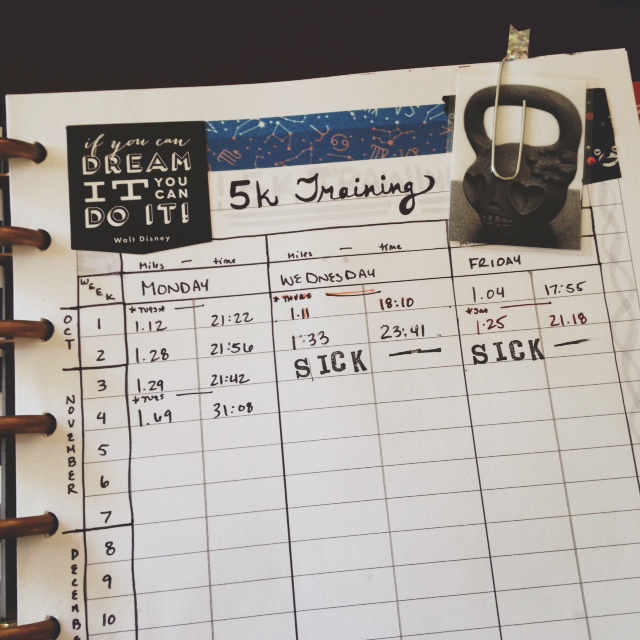 if you can
DREAM
IT YOU CAN
DO IT!
Walt Disney
5k Training
Miles — time Miles — time
WEEK MONDAY WEDNESDAY FRIDAY
OCT
*TUES* *THURS*
1 1.12 21:22 1.11 18:10 1.04 17:55
*SAT
2 1.28 21:56 1:33 23:41 1.25 21.18
NOVEMBER
3 1.29 21:42 SICK — SICK —
*TUES
4 1.69 31:08
5
6
7
DECEMB
8
9
10